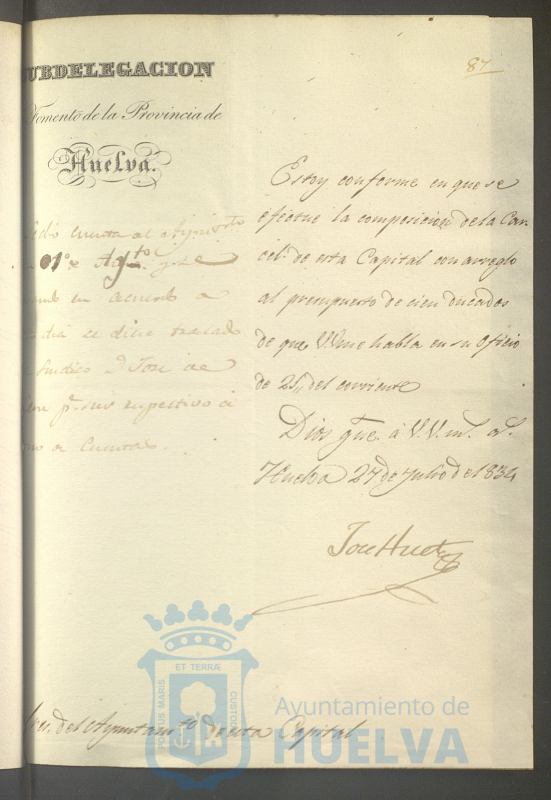 87
UBDELEGACION
Fomento de la Provincia de
Huelva.
cuenta al Ayunto
01º de Agto. y se
en acuerdo a
dia se dice traslado
Sindico D Jose
respectivo
de Cuenta.
Estoy conforme en que se
efectue la composicion de la Car
cel. de esta Capital con arreglo
al presupuesto de cien ducados
de que VV. me habla en su Oficio
de 25,, del corriente
Dios gue. á V.V. ms. as.
Huelva 27 de Julio de 1834
Jose Huet
res. del Ayuntamto. de esta Capital
ET TERRÆ
PORTUS MARIS
CUSTODIA
Ayuntamiento de
HUELVA